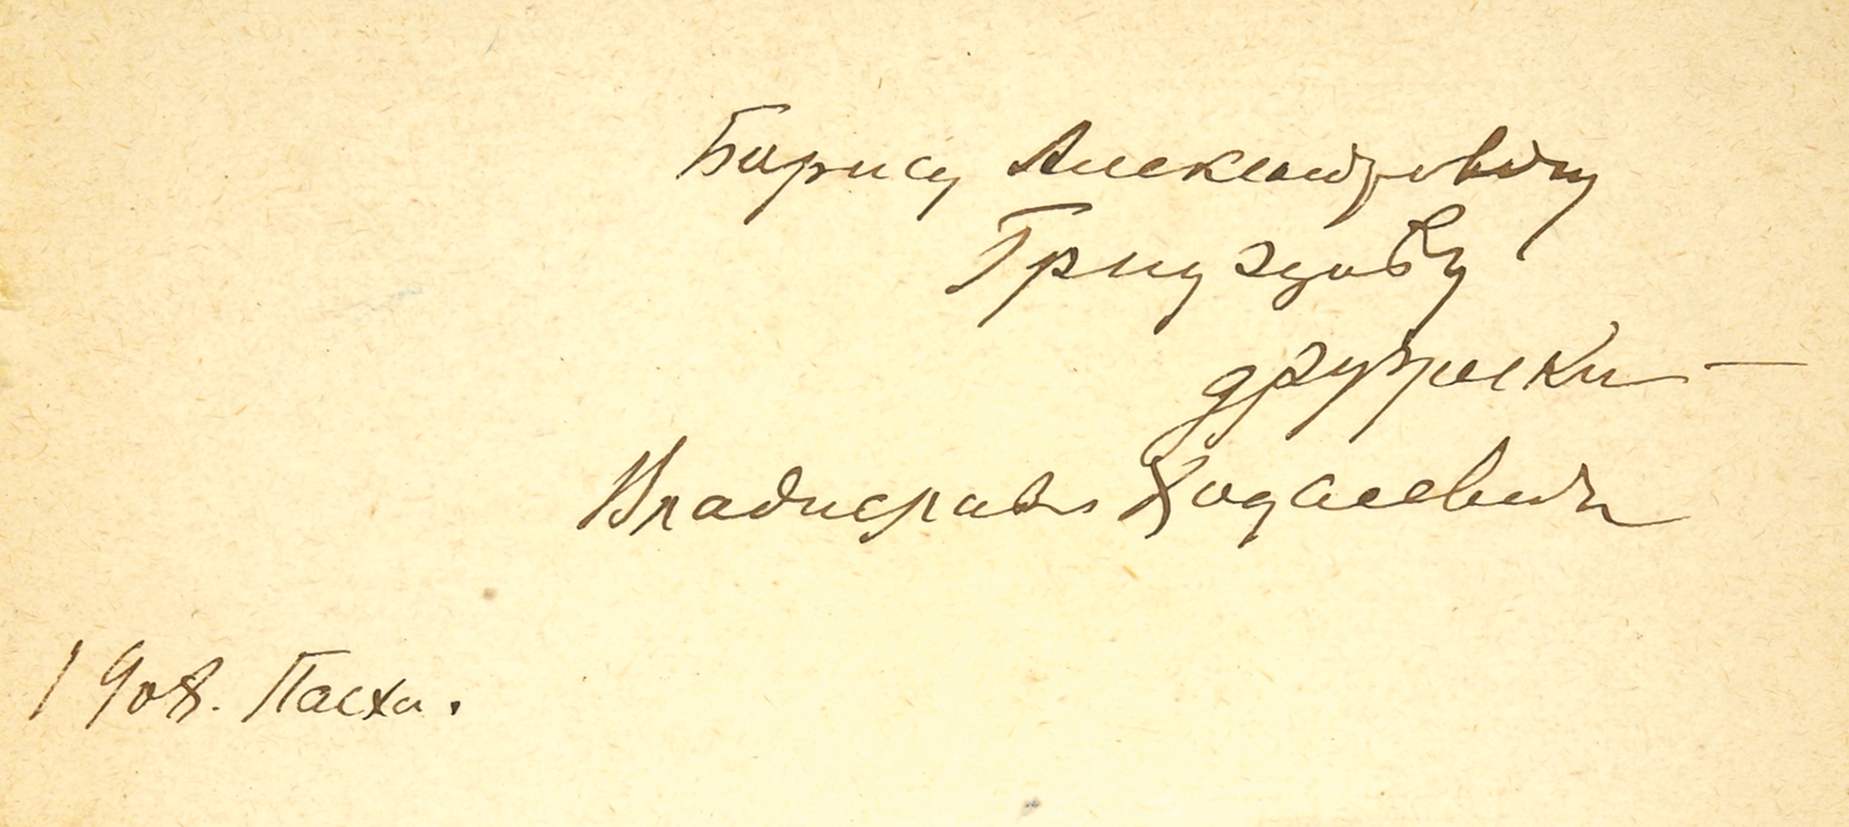 Борису Александровичу
Грифцову
дружески —
Владиславъ Ходасевичъ
1908. Пасха.